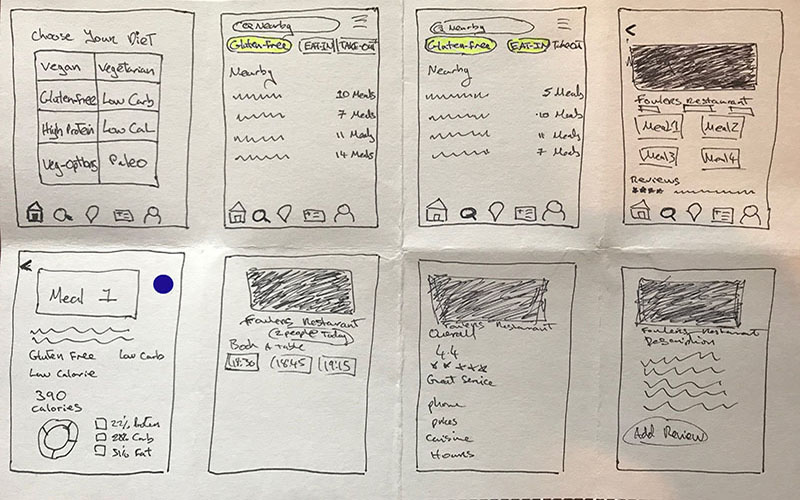 Choose Your Diet
Vegan Vegetarian
Gluten-free Low Carb
High Protein Low Cal
Veg-options Paleo
Nearby
Gluten-Free EAT-IN TAKE-OUT
Nearby
10 Meals
7 Meals
11 Meals
14 Meals
Nearby
Gluten-Free EAT-IN Takeout
Nearby
5 Meals
10 Meals
11 Meals
7 Meals
Fowlers Restaurant
Meal 1 Meal 2
Meal 3 Meal 4
Reviews
Meal 1
Gluten Free Low Carb
Low Calorie
390
calories
22% Protein
Carb
Fat
Fowlers Restaurant
2 people Today
Book a table
18:30 18:45 19:15
Fowlers Restaurant
Overall
4.4
Great Service
phone
prices
Cuisine
Hours
Fowlers Restaurant
Description
Add Review